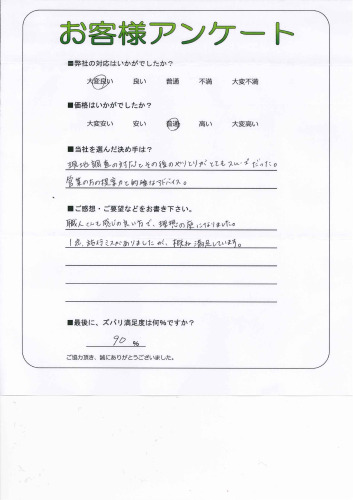 お客様アンケート
■弊社の対応はいかがでしたか?
大変良い 良い 普通 不満 大変不満
■価格はいかがでしたか?
大変安い 安い 普通 高い 大変高い
■当社を選んだ決め手は?
現地調査の対応とその後のやりとりがとてもスムーズだった。
営業の方の提案力と的確なアドバイス。
■ご感想・ご要望などをお書き下さい。
職人さんも感じの良い方で、理想の庭になりました。
1点、施行ミスがありましたが、概ね満足しています。
■最後に、ズバリ満足度は何%ですか?
90 %
ご協力頂き、誠にありがとうございました。